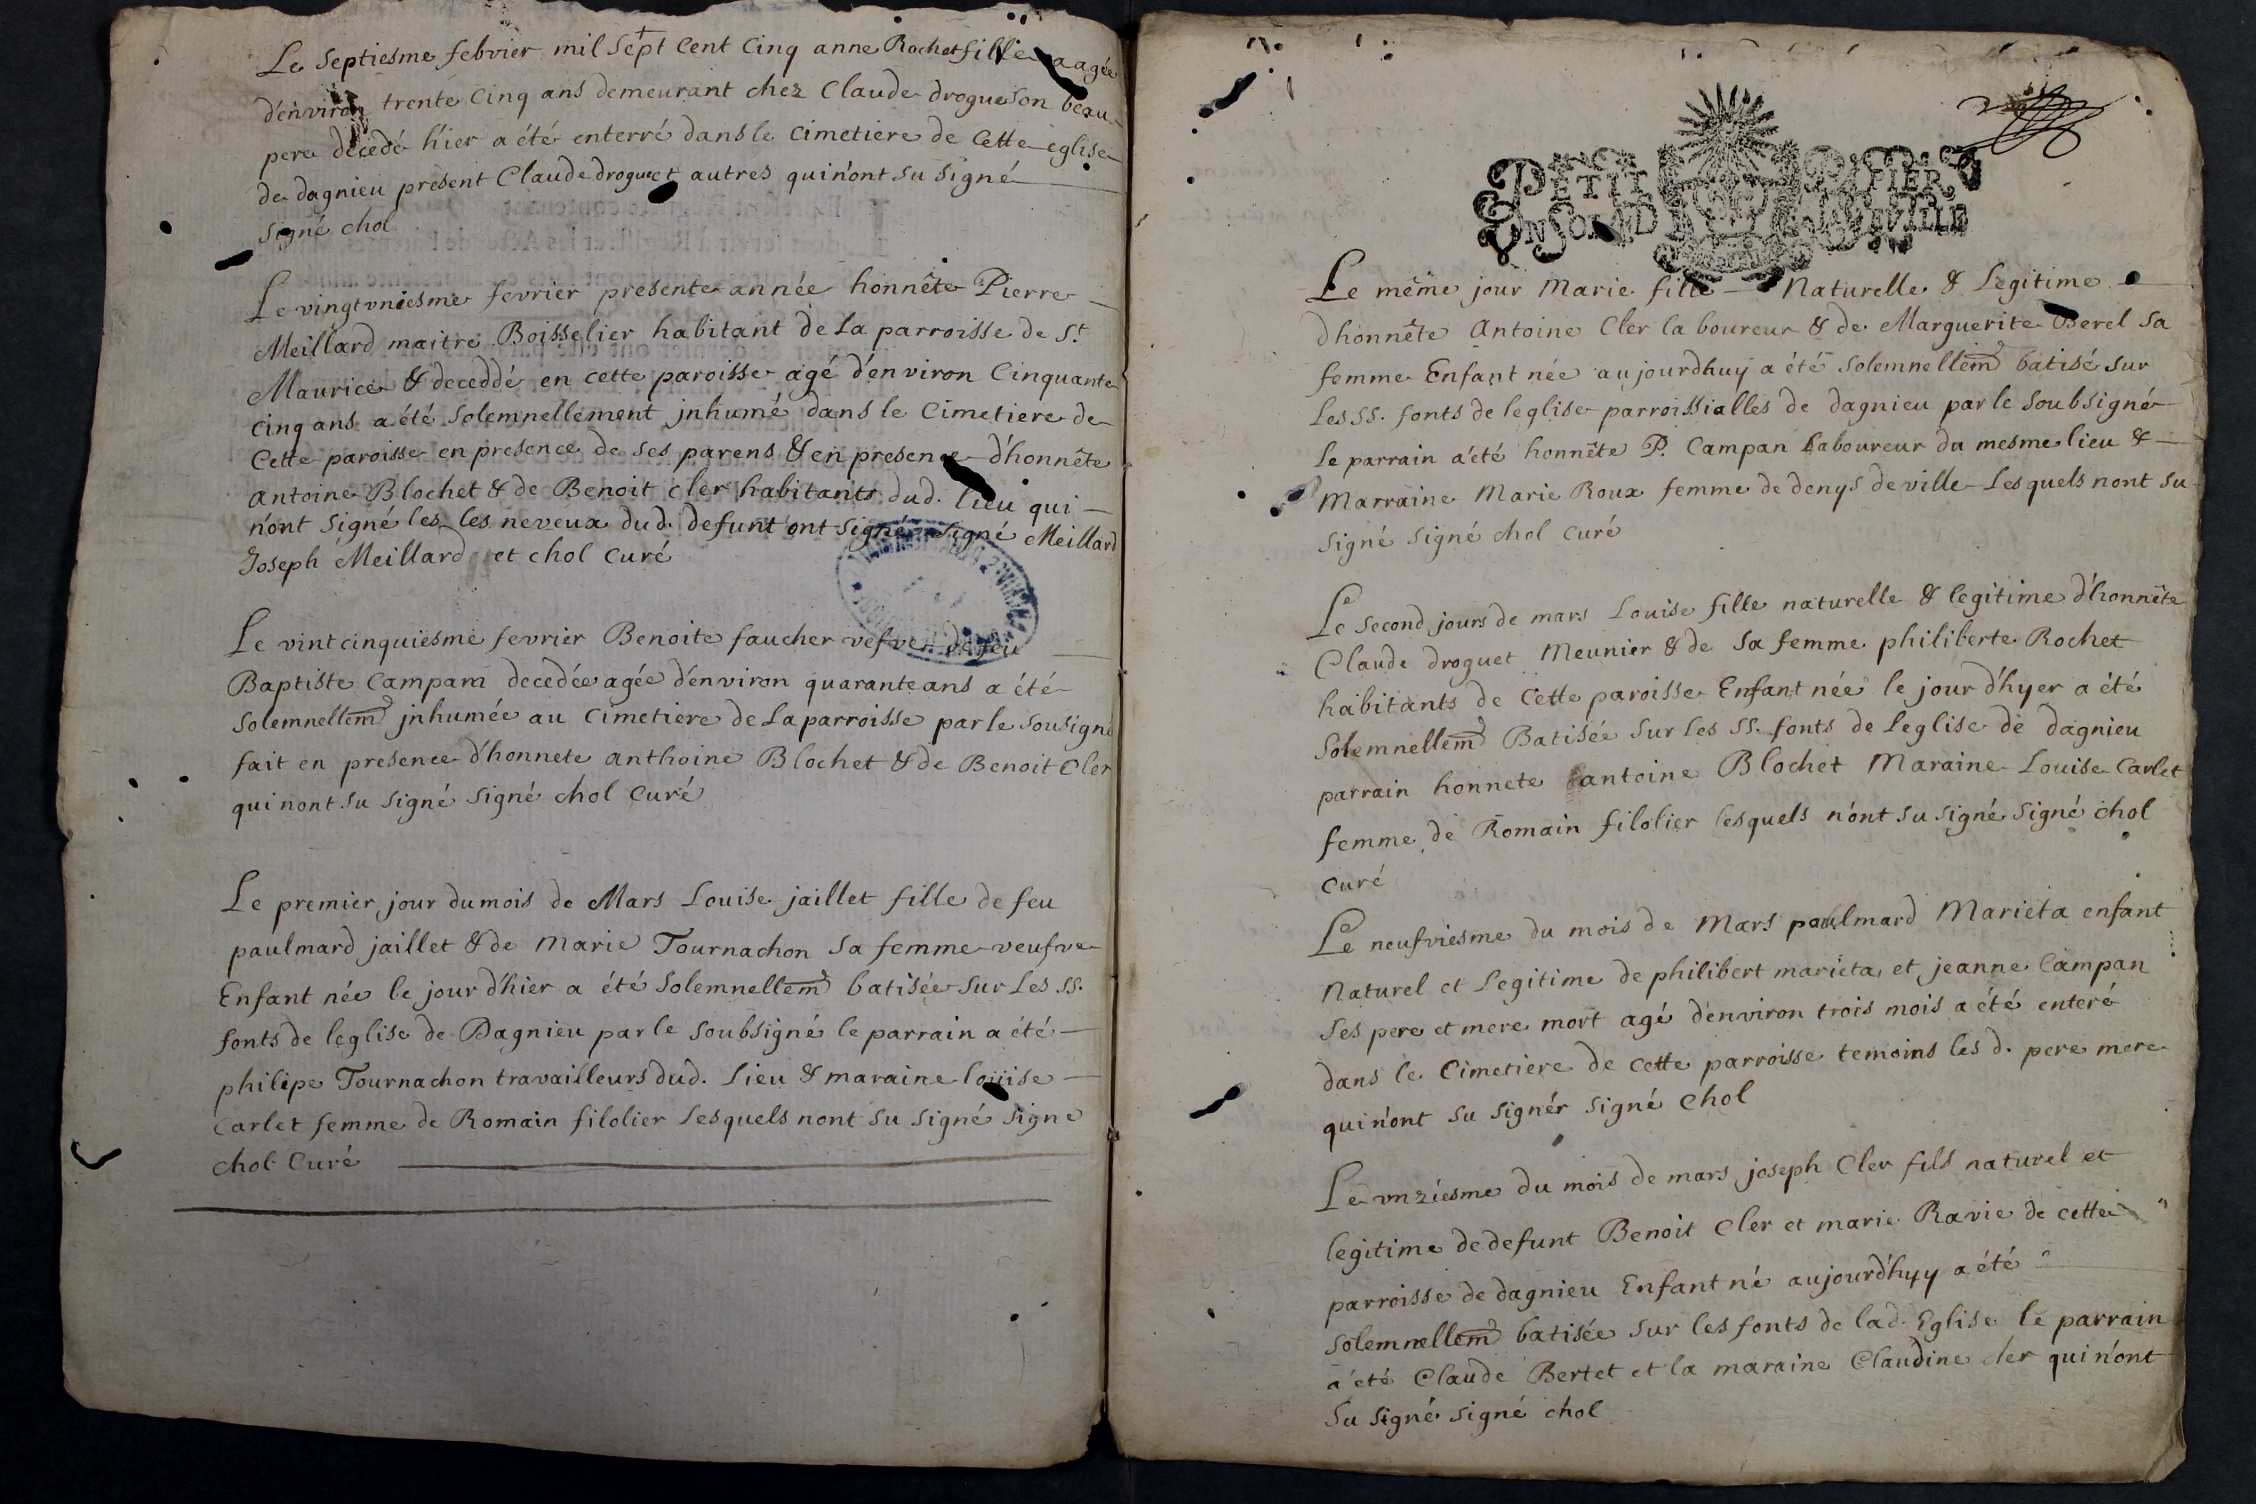 Le septiesme febvier mil sept cent cinq anne Rochet fille aagée
d'environ trente cinq ans demeurant chez Claude droguet son beau
pere décedé h'ier a été enterré dans le cimetiere de cette eglise
de dagnieu présent Claude droguet et autres qui n'ont su signé
signé chol
Le vingt vniesme fevrier presente année honnête Pierre
Meillard maitre Boisselier habitant de la parroisse de St.
Maurice & deceddé en cette paroisse agé d'environ Cinquante
cinq ans a été solemnellement jnhumé dans le Cimetiere de
Cette paroisse en presence de ses parens & en presence d'honnête
antoine Blochet & de Benoit cler habitants dud. lieu qui
n'ont signé les les neveux dud. defunt ont signé signé Meillard
Joseph Meillard et chol curé
Le vint cinquiesme fevrier Benoite faucher vefve de feu
Baptiste Campam decedée agée d'environ quarante ans a été
solemnellem jnhumée au cimetiere de la parroisse par le sousigné
fait en presence d'honnete anthoine Blochet & de Benoit Cler
qui nont su signé signé chol curé
Le premier jour du mois de Mars Louise jaillet fille de feu
paulmard jaillet & de Marie Tournachon sa femme veufve
Enfant née le jour d'hier a été solemnellem batisée sur les SS.
fonts de leglise de Dagnieu par le soubsigné le parrain a été
philipe Tournachon travailleurs dud. lieu & maraine loüise
Carlet femme de Romain filolier lesquels nont su signé signe
chol Curé
PETIT PAPIER
UN SOL LA DEVILLE
Le même jour Marie fille Naturelle & Legitime
dhonnête Antoine Cler la boureur & de Marguerite Berel sa
femme Enfant née aujourdhuy a été solemnellem batisé sur
Les SS. fonts de leglise parroissialles de dagnieu par le soubsigné
le parrain a'eté honnête P. Campan Laboureur du mesme lieu &
Marraine Marie Roux femme de denys deville Lesquels nont su
signé signé chol curé
Le second jours de mars Louise fille naturelle & legitime d'honnête
Claude droguet Meunier & de sa femme philiberte Rochet
habitants de cette paroisse Enfant née le jour d'hyer a été
solemnellem Batisée sur les SS. fonts de leglise de dagnieu
parrain honnete antoine Blochet Maraine Louise Carlet
femme de Romain filolier lesquels n'ont su signé signé chol
curé
Le neufviesme du mois de Mars paulmard Marieta enfant
Naturel et legitime de philibert marieta et jeanne Campan
ses pere et mere mort agé d'environ trois mois a été enteré
dans le Cimetiere de cette parroisse temoins les d. pere mere
qui n'ont su signér signé chol
Le vnziesme du mois de mars joseph Cler fils naturel et
legitime de defunt Benoit Cler et marie Ravie de cette
parroisse de dagnieu Enfant né aujourd'hyy a été
solemnellem batisée sur les fonts de lad. Eglise le parrain
a été Claude Bertet et la maraine Claudine cler qui n'ont
su signé signé chol